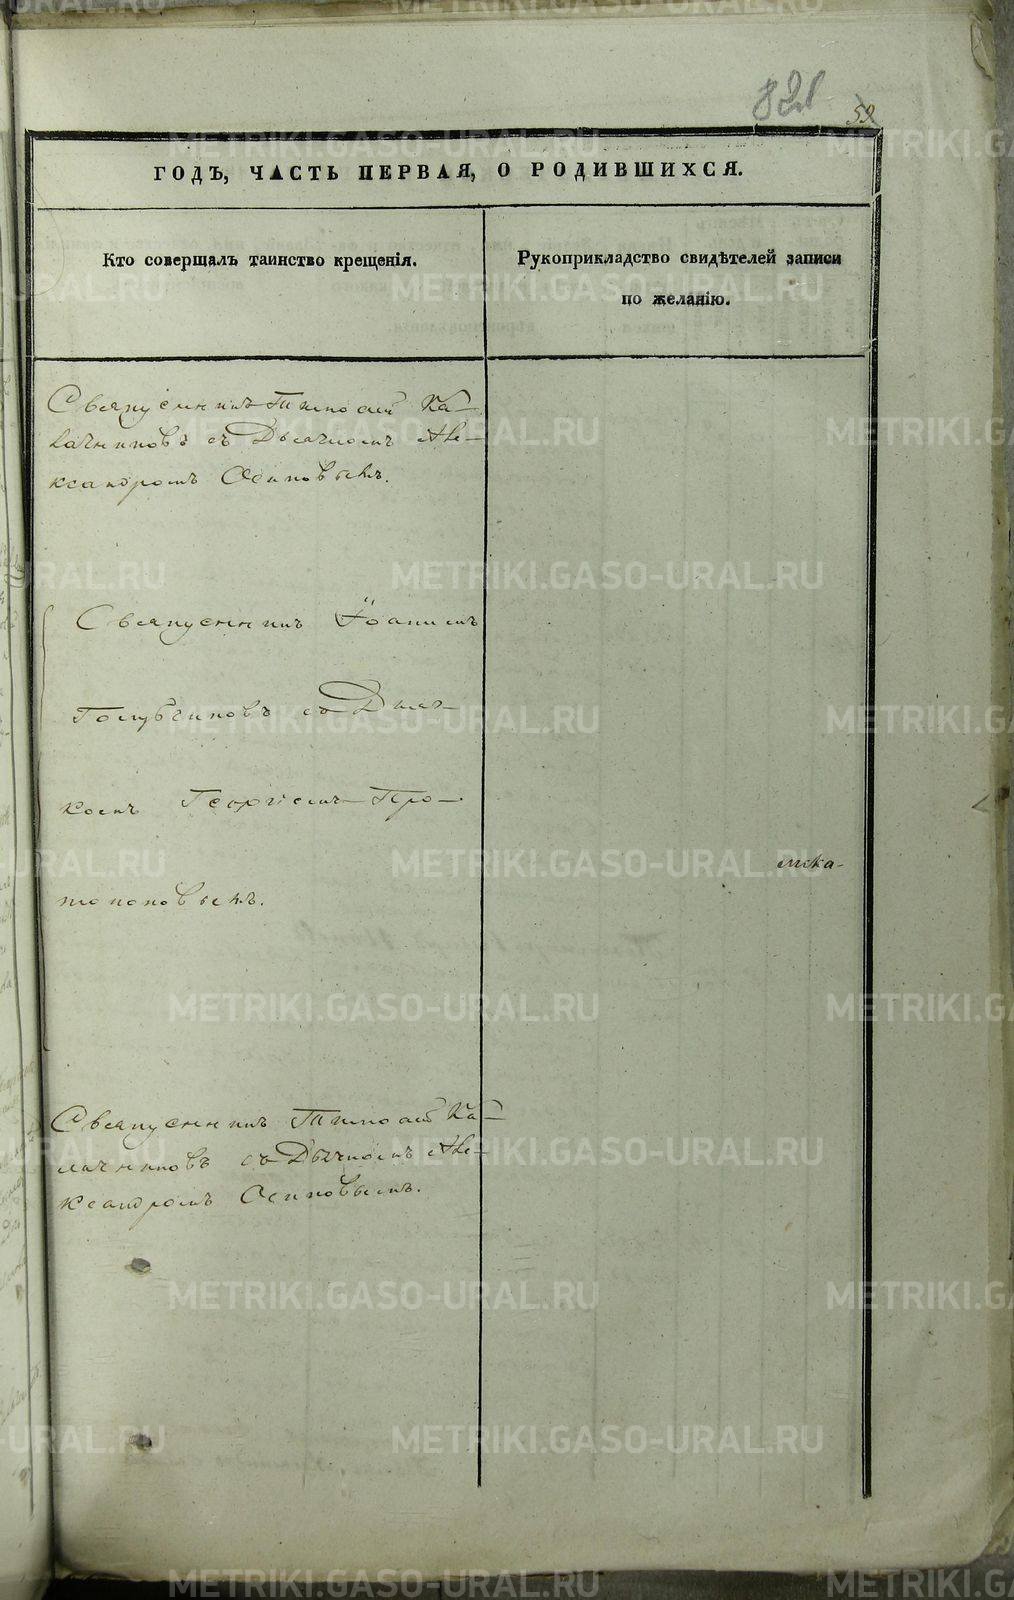 821 59
ГОДЪ, ЧАСТЬ ПЕРВАЯ, О РОДИВШИХСЯ.
Кто совершалъ таинство крещенія.
Рукоприкладство свидѣтелей записи
по желанію.
Священникъ Тимоѳей Ка-
лачниковъ съ Дьячкомъ Але-
ксандромъ Осиповымъ.
Священникъ Іоаннъ
Голубчиковъ съ Дьяч-
комъ Георгіемъ Про-
топоповымъ.
Священникъ Тимоѳей Ка-
лачниковъ съ Дьячкомъ Але-
ксандромъ Осиповымъ.
METRIKI.GASO-URAL.RU